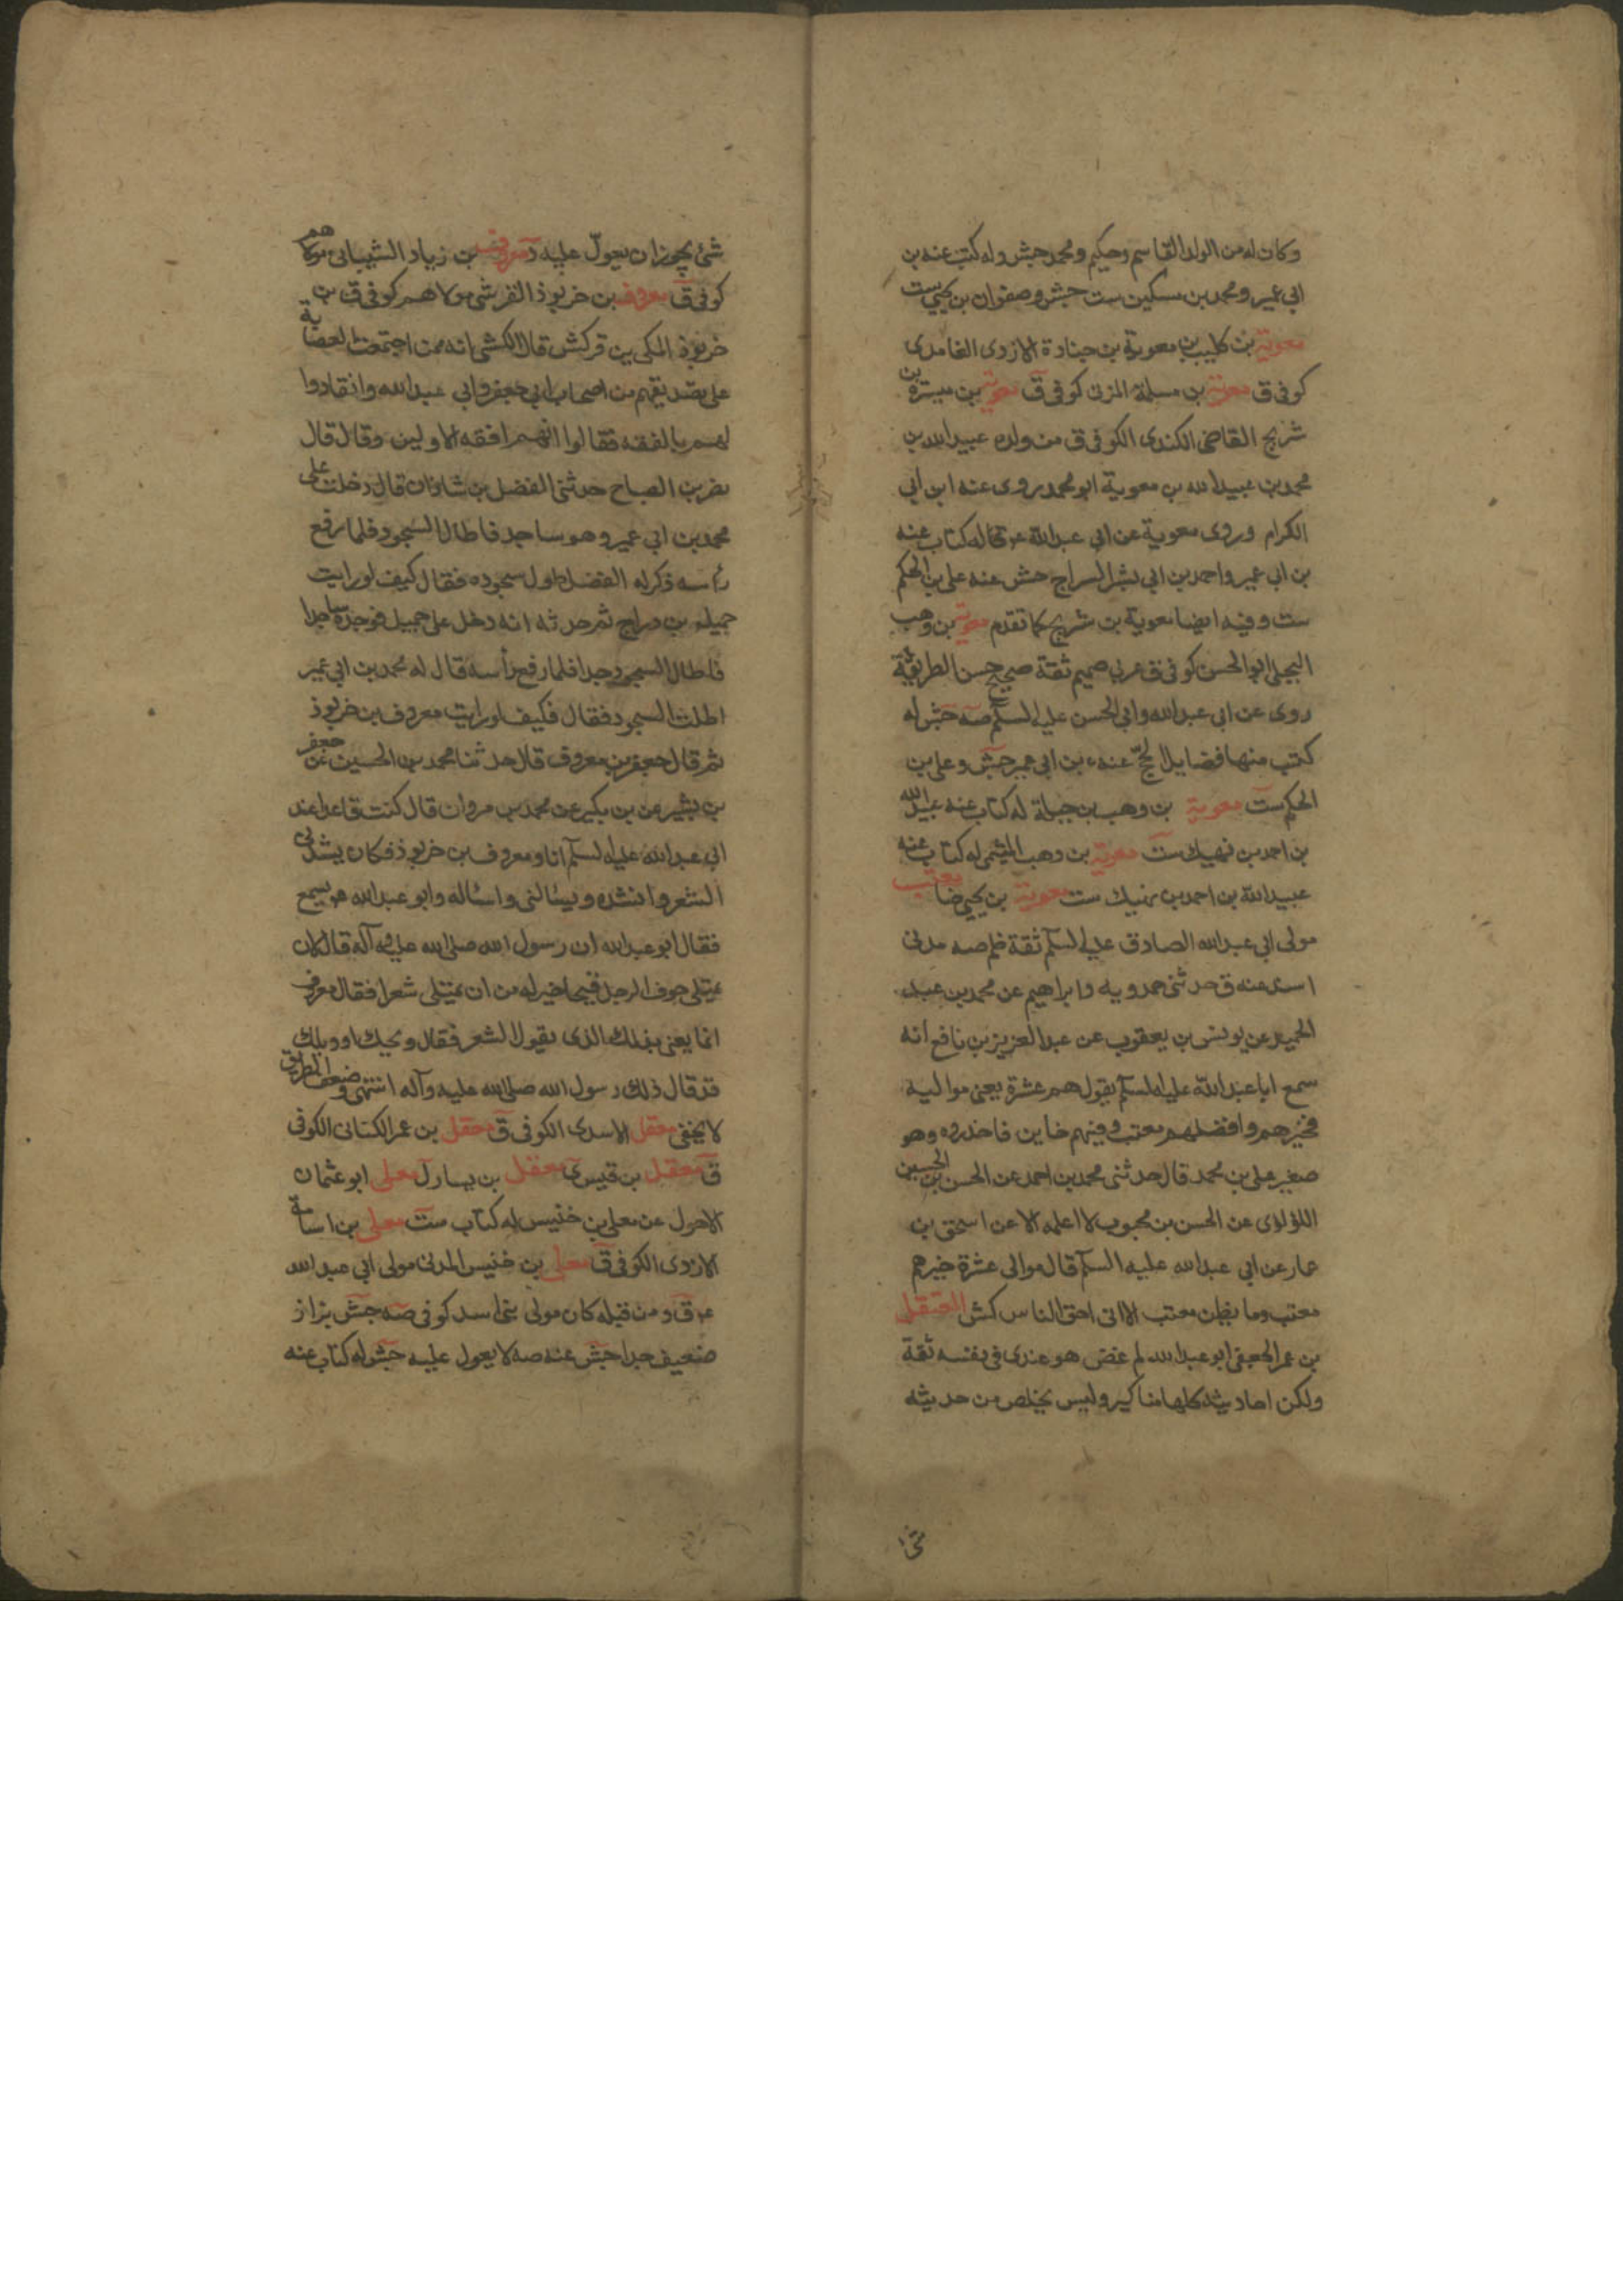 وكان له من الولد القاسم وحكيم ومحمد جش وله كتب عنه بن
ابي عمير ومحمد بن سكين ست جش وصفوان بن يحيى ست
معوية بن كليب بن معوية بن جنادة الازدى الغامدى
كوفى ق معوية بن مسلمة المزنى كوفى ق معوية بن ميسرة بن
شريح القاضى الكندى الكوفى ق من ولده عبيد الله بن
محمد بن عبيد الله بن معوية ابو محمد روى عنه ابن ابي
الكرام وروى معوية عن ابي عبد الله له كتاب عنه
بن ابي عمير واحمد بن ابي بشر السراج جش عنه على بن الحكم
ست وفيه ايضا معوية بن شريح كما تقدم معوية بن وهب
البجلى ابو الحسن كوفى ق عربي صميم ثقة صحيح حسن الطريقة
روى عن ابى عبد الله وابى الحسن عليه السلم صه جش له
كتب منها فضايل الحج عنه بن ابى عمير جش وعلى بن
الحكم ست معوية بن وهب بن جبلة له كتاب عنه عبيد الله
بن احمد بن نهيك ست معوية بن وهب الميثمى له كتاب عنه
عبيد الله بن احمد بن نهيك ست معوية بن يحيى ضا معتب
مولى ابى عبد الله الصادق عليه السلم ثقة ظم صه مدنى
اسند عنه ق حدثنى حمدويه وابراهيم عن محمد بن عبد
الحميد عن يونس بن يعقوب عن عبد العزيز بن نافع انه
سمع ابا عبد الله عليه السلم يقول هم عشرة يعنى مواليه
فخيرهم وافضلهم معتب وفيهم خاين فاحذروه وهو
صغير على بن محمد قال حدثنى محمد بن احمد عن الحسن بن الحسين
اللؤلؤى عن الحسن بن محبوب لا اعلمه الا عن اسحق بن
عمار عن ابي عبد الله عليه السلم قال موالى عشرة خيرهم
معتب وما يظن معتب الا انى احق الناس كش المفضل
بن عمر الجعفى ابو عبد الله لم غض هو عندى فى نفسه ثقة
ولكن احاديثه كلها مناكير وليس يخلص من حديثه
شئ يجوز ان يعول عليه د معروف بن زياد الشيبانى مولاهم
كوفى ق معروف بن خربوذ القرشى مولاهم كوفى ق بن
خربوذ المكى ين قر كش قال الكشى انه ممن اجتمعت العصابة
على تصديقهم من اصحاب ابى جعفر وابي عبد الله وانقادوا
لهم بالفقه فقالوا انهم افقه الاولين وقال قال
نصر بن الصباح حدثنى الفضل بن شاذان قال دخلت على
محمد بن ابى عمير وهو ساجد فاطال السجود فلما رفع
رأسه ذكر له الفضل طول سجوده فقال كيف لو رايت
جميل بن دراج ثم حدثه انه دخل على جميل فوجده ساجدا
فاطال السجود جدا فلما رفع رأسه قال له محمد بن ابى عمير
اطلت السجود فقال فكيف لو رايت معروف بن خربوذ
ثم قال جعفر بن معروف قال حدثنا محمد بن الحسين عن جعفر
بن بشير عن بن بكير عن محمد بن مروان قال كنت قاعدا عند
ابى عبد الله عليه السلم انا ومعروف بن خربوذ فكان ينشدنى
الشعر وانشده ويسألنى واسأله وابو عبد الله يسمع
فقال ابو عبد الله ان رسول الله صلى الله عليه وآله قال لان
يمتلى جوف الرجل قيحا خير له من ان يمتلى شعرا فقال معروف
انما يعنى بذلك الذى يقول الشعر فقال ويحك او ويلك
قد قال ذلك رسول الله صلى الله عليه وآله انتهى وضعف الطريق
لا يخفى معقل الاسدى الكوفى ق معقل بن عمر الكنانى الكوفى
ق معقل بن قيس ى معقل بن يسار ل معلى ابو عثمان
الاحول عن معلى بن خنيس له كتاب ست معلى بن اسامة
الازدى الكوفى ق معلى بن خنيس المدنى مولى ابى عبد الله
ق ومن قبله كان مولى بنى اسد كوفى صه جش بزاز
ضعيف جدا جش عنه صه لا يعول عليه جش له كتاب عنه